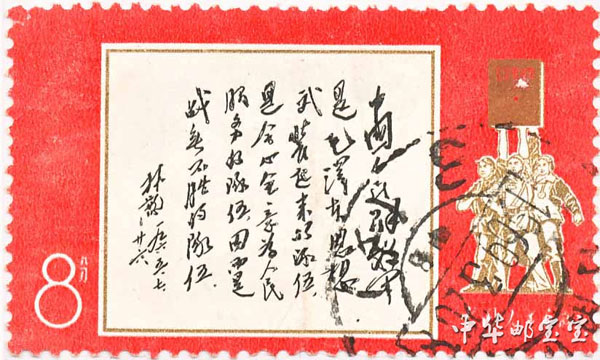 中国人民解放军
是毛泽东思想
武装起来的队伍、
是全心全意为人民
服务的队伍、因而是
战无不胜的队伍。
林彪
一九六五、七、
廿六
8分